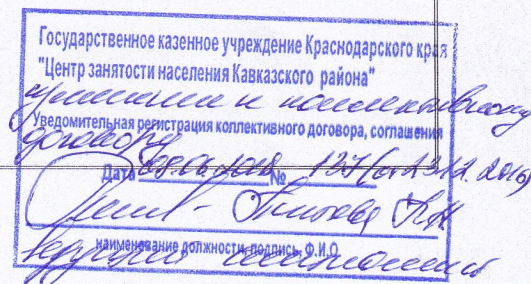 Государственное казенное учреждение Краснодарского края
"Центр занятости населения Кавказского района"
к коллективному
Уведомительная регистрация коллективного договора, соглашения
договору
Дата 08.06.2018 № 137 (от 23.12.2016)
наименование должности, подпись, Ф.И.О.
ведущий